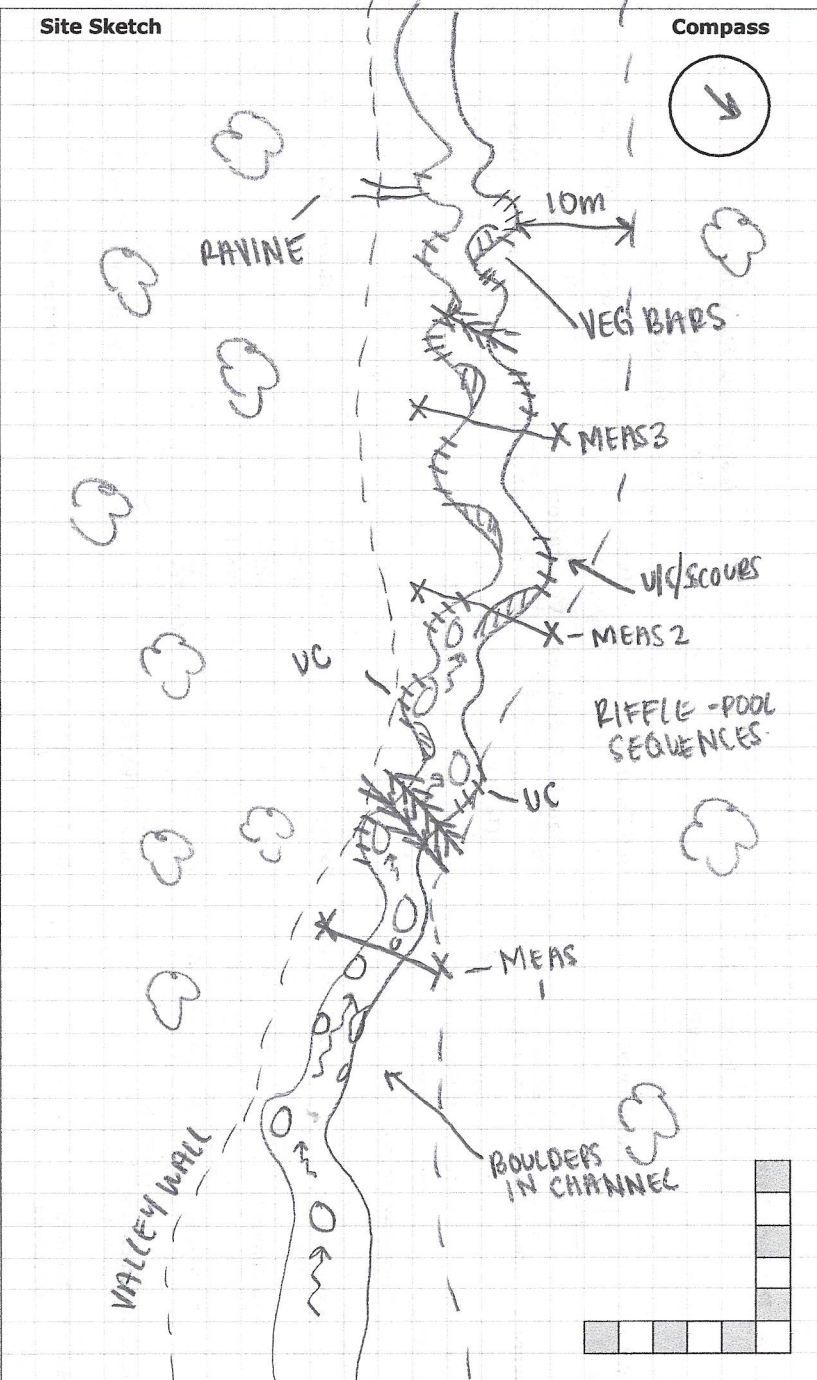 Site Sketch
Compass
10m
RAVINE
VEG BARS
MEAS 3
U/C/SCOURS
MEAS 2
UC
RIFFLE-POOL
SEQUENCES
UC
MEAS
1
BOULDERS
IN CHANNEL
VALLEY WALL